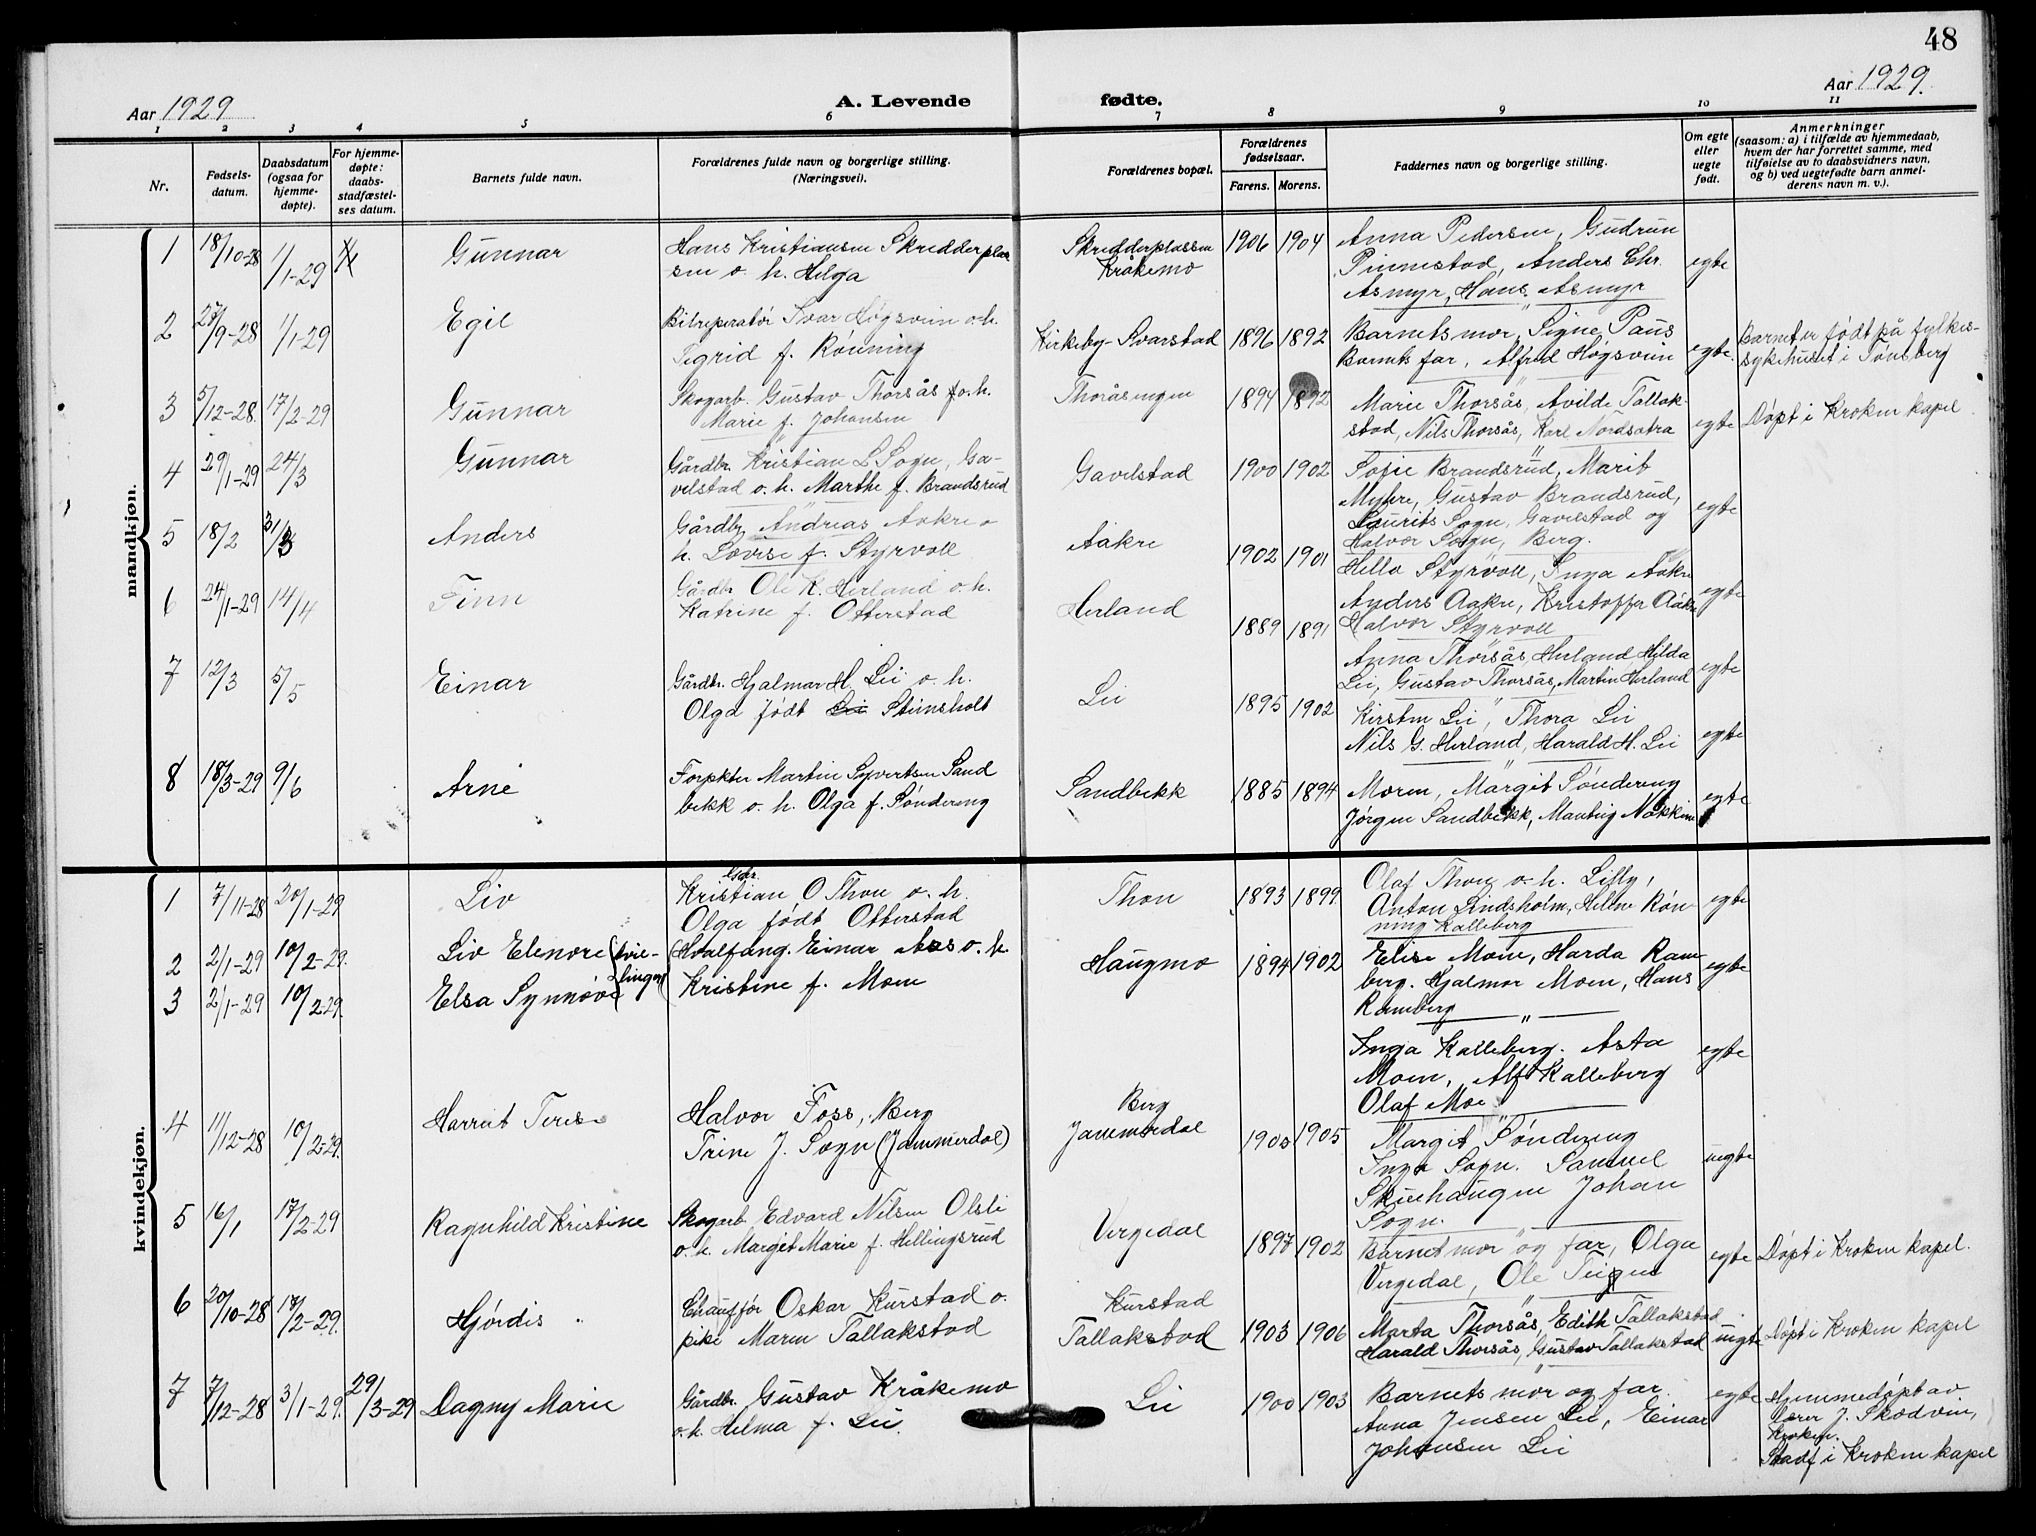 48
Aar 1929
A. Levende
fødte.
Aar 1929.
1 2 3 4 5 6 7 8 9 10 11
Nr.
Fødsels-
datum.
Daabsdatum
(ogsaa for
hjemme-
døpte).
For hjemme-
døpte:
daabs-
stadfæstel-
ses datum.
Barnets fulde navn.
Forældrenes fulde navn og borgerlige stilling.
(Næringsvei).
Forældrenes bopæl.
Forældrenes
fødselsaar.
Farens. Morens.
Faddernes navn og borgerlige stilling.
Om egte
eller
uegte
født.
Anmerkninger
(saasom: a) i tilfælde av hjemmedaab,
hvem der har forrettet samme, med
tilføielse av to daabsvidners navn,
og b) ved uegtefødte barn anmel-
derens navn m. v.).
mandkjøn.
1 18/10-28 1/1-29 Gunnar
Hans Kristiansen Skredderplas
sen o. h. Helga
Skredderplassen
Kråkemo
1906 1904
Anna Pedersen, Gudrun
Pinnestad, Anders Chr.
Asmyr, Hans Asmyr
egte
2 27/9-28 1/1-29 Egil
Bilreperatör Ivar Høgsveen o.h.
Sigrid f. Rönning
Kirkeby-Svarstad
1896 1892
Barnets mor, Signe Paus
Barnets far, Alfred Høgsveen
egte
Barnet er født på fylkes-
sykehuset i Tønsberg
3 5/12-28. 17/2-29 Gunnar
Skogarb. Gustav Thorsås o.h.
Marie f. Johansen
Thoråsengen
1894 1892
Marie Thorsås, Avilde Tallak-
stad, Nils Thorsås, Karl Nordsætra
egte
Døpt i Kroken kapel
4 29/1-29 24/3 Gunnar
Gårdbr. Kristian L Sogn, Ga-
velstad o. h. Marthe f. Brandsrud
Gavelstad
1900 1902
Sofie Brandsrud, Marit
Myhre, Gustav Brandsrud,
Laurits Sogn, Gavelstad og
Halvor Sogn, Berg.
egte
5 18/2 31/3 Anders
Gårdbr. Andreas Aakre o
h. Lovise f. Styrvoll
Aakre
1902 1901
Hella Styrvoll, Inga Aakre
Anders Aakre, Kristoffer Aakre
Halvor Styrvoll
egte
6 24/1-29 14/4 Finn
Gårdbr Ole K. Herland o. h.
Katrine f. Otterstad
Herland
1889 1891
Anna Thorsås, Herland, Hilda
Lei, Gustav Thorsås, Martin Herland
egte
7 12/3 5/5 Einar
Gårdbr. Hjalmar H. Lei o. h.
Olga født Lei Steinsholt
Lei
1895 1902
Kirsten Lei, Thora Lei
Nils G. Herland, Harald H. Lei
egte
8 18/3-29 9/6 Arne
Forpkter Martin Syvertsen Sand
bekk o. h. Olga f. Söndereng
Sandbekk
1885 1894
Moren, Margit Söndereng
Jörgen Sandbekk,
egte
kvindekjøn.
1 7/11-28 20/1-29 Liv
Gbr.
Kristian O Thon o. h.
Olga født Otterstad
Thon
1893 1899
Olaf Thon o. h. Lilly,
Anton Lindsholm, Hellne Rön-
ning Kalleberg
egte
2 2/1-29 10/2-29. Liv Elenore (tvie-
3 2/1-29 10/2-29. Elsa Synnöve linger)
(Hvalfang. Einar Aas o. h.
Kristine f. Moen
Haugmo
1894 1902
Elise Moen, Harda Ram
berg. Hjalmar Moen, Hans
Ramberg
egte
Inga Kalleberg. Asta
Moen, Alf Kalleberg
Olaf Moe.
egte
4 11/12-28 10/2-29. Harriet Terese
Halvor Foss, Berg
Trine J. Sogn (Jammerdal)
Berg
Jammerdal
1900 1905
Margit Söndereng
Inga Sogn. Samuel
Skuehaugen Johan
Sogn.
uegte
5 16/1 17/2-29 Ragnhild Kristine
Skogarb Edvard Nilsen Olsli
o. h. Margit Marie f. Hellingsrud
Vergedal
1897 1902
Barnets mor og far, Olga
Vergedal, Ole Teigen
egte
Døpt i Kroken kapel.
6 20/10-28 17/2-29. Hjördis
Chauffør Oskar Kurstad o.
pike Maren Tallakstad
Kurstad
Tallakstad
1903 1906
Marta Thorsås, Edith Tallakstad
Harald Thorsås, Gustav Tallakstad
uegte
Døpt i Kroken kapel
7 7/12-28 3/1-29. 29/3-29 Dagny Marie
Gårdbr. Gustav Kråkemo
o. h. Helma f. Lei.
Lei
1900 1903
Barnets mor og far.
Anna Jensen Lei, Einar
Johansen Lei
egte
Hjemmedøpt av
lærer J. Skodvin,
Kroken.
Stadf i Kroken kapel